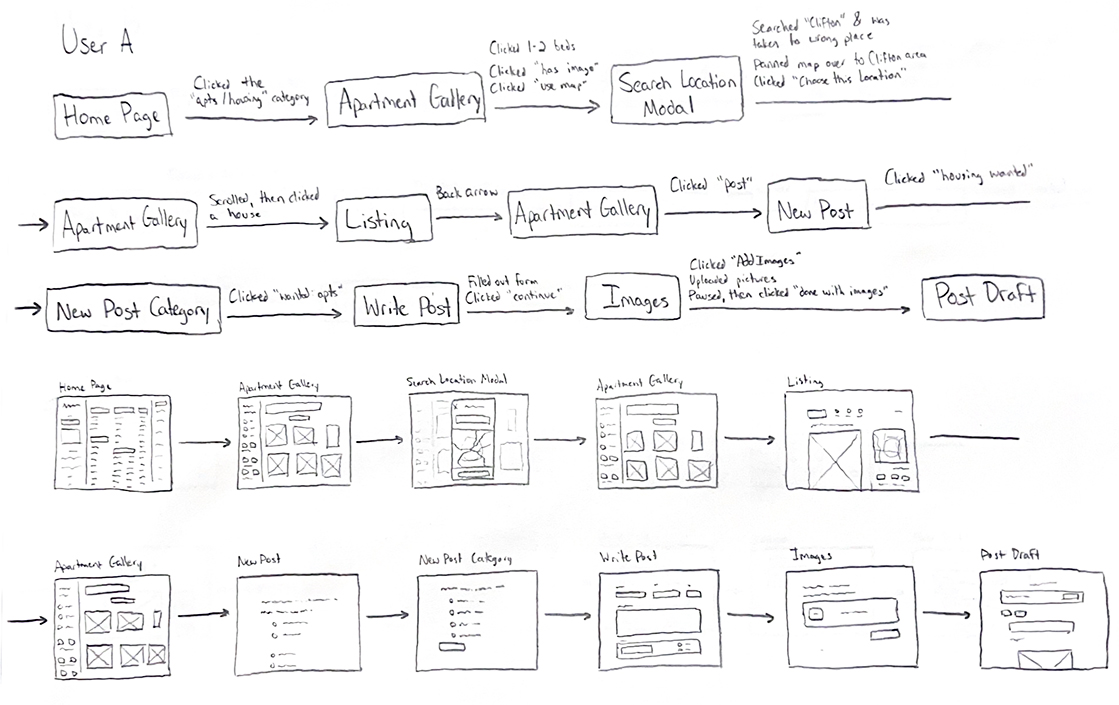 User A
Home Page
Clicked the
"apts/housing" category
Apartment Gallery
Clicked 1-2 beds
Clicked "has image"
Clicked "use map"
Search Location
Modal
Searched "Clifton" & was
taken to wrong place
Panned map over to Clifton area
Clicked "Choose this Location"
Apartment Gallery
Scrolled, then clicked
a house
Listing
Back arrow
Apartment Gallery
Clicked "post"
New Post
Clicked "housing wanted"
New Post Category
Clicked "wanted: apts"
Write Post
Filled out form
Clicked "continue"
Images
Clicked "Add Images"
Uploaded pictures
Paused, then clicked "done with images"
Post Draft
Home Page
Apartment Gallery
Search Location Modal
Apartment Gallery
Listing
Apartment Gallery
New Post
New Post Category
Write Post
Images
Post Draft